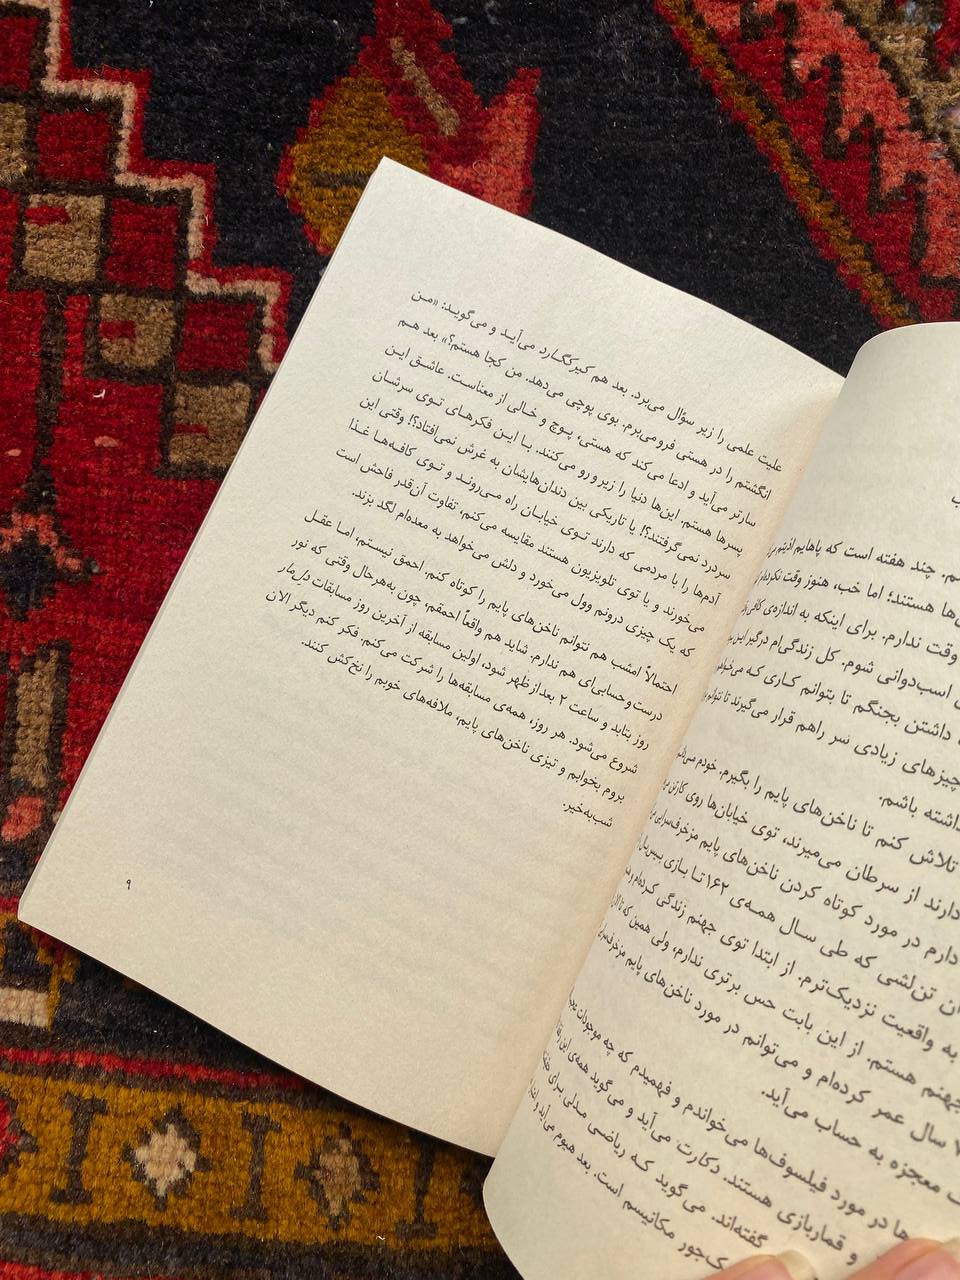 چند هفته است که پاهایم اذیتم
هستند؛ اما خب، هنوز وقت نکرده‌ام
وقت ندارم. برای اینکه به اندازه‌ی کافی
اسب‌دوانی شوم. کل زندگی‌ام درگیر این
داشتن بجنگم تا بتوانم کاری که
چیزهای زیادی سر راهم قرار می‌گیرند تا
داشته باشم.
تلاش کنم تا ناخن‌های پایم را بگیرم. خودم
دارند از سرطان می‌میرند، توی خیابان‌ها روی کارتن
دارم در مورد کوتاه کردن ناخن‌های پایم مزخرف‌سرایی
تن‌لشی که طی سال همه‌ی ۱۶۲ تا بازی بیس‌بال
به واقعیت نزدیک‌ترم. از ابتدا توی جهنم زندگی کرده‌ام
جهنم هستم. از این بابت حس برتری ندارم، ولی همین که
سال عمر کرده‌ام و می‌توانم در مورد ناخن‌های پایم
معجزه به حساب می‌آید.
در مورد فیلسوف‌ها می‌خواندم و فهمیدم که چه موجودات
و قماربازی هستند. دکارت می‌آید و می‌گوید همه‌ی این
گفته‌اند. می‌گوید که ریاضی مدلی برای
مکانیسم است. بعد هیوم می‌آید و
علیت علمی را زیر سؤال می‌برد. بعد هم کیرکگارد می‌آید و می‌گوید: «من
انگشتم را در هستی فرو می‌برم. بوی پوچی می‌دهد. من کجا هستم؟» بعد هم
سارتر می‌آید و ادعا می‌کند که هستی، پوچ و خالی از معناست. عاشق این
پسرها هستم. این‌ها دنیا را زیر و رو می‌کنند. با این فکرهای توی سرشان
سردرد نمی‌گرفتند؟! یا تاریکی بین دندان‌هایشان به غرش نمی‌افتاد؟! وقتی این
آدم‌ها را با مردمی که دارند توی خیابان راه می‌روند و توی کافه‌ها غذا
می‌خورند و یا توی تلویزیون هستند مقایسه می‌کنم، تفاوت آن‌قدر فاحش است
که یک چیزی درونم وول می‌خورد و دلش می‌خواهد به معده‌ام لگد بزند.
احتمالاً امشب هم نتوانم ناخن‌های پایم را کوتاه کنم. احمق نیستم، اما عقل
درست‌وحسابی‌ای هم ندارم. شاید هم واقعاً احمقم، چون به‌هرحال وقتی که نور
روز بتابد و ساعت ۲ بعدازظهر شود، اولین مسابقه از آخرین روز مسابقات دل‌مار
شروع می‌شود. هر روز، همه‌ی مسابقه‌ها را شرکت می‌کنم. فکر کنم دیگر الان
بروم بخوابم و تیزی ناخن‌های پایم، ملافه‌های خوبم را نخ‌کش کنند.
شب‌به‌خیر.
۹